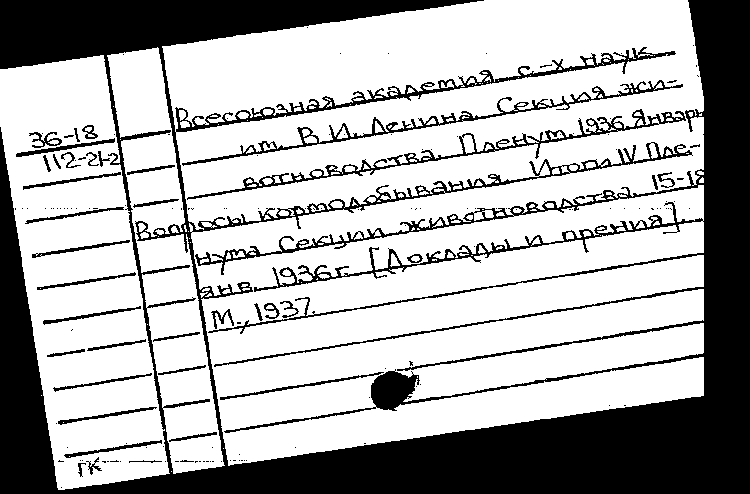 36-18
112-21-2
Всесоюзная академия с.-х. наук
им. В.И. Ленина. Секция жи-
вотноводства. Пленум. 1936. Январь
Вопросы кормодобывания. Итоги IV Пле-
нума Секции животноводства. 15-18
янв. 1936 г. [Доклады и прения]
М., 1937.
ГК